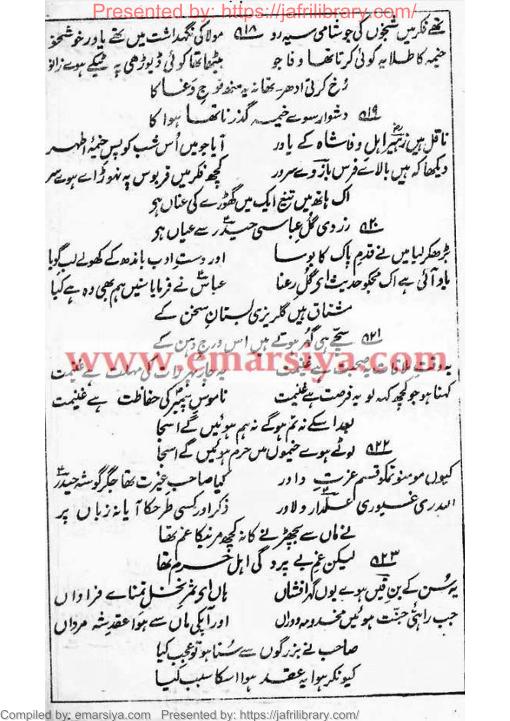 Presented by: https://jafrilibrary.com/
تھے فکر میں شبخوں کی جو شامی سیہ رو ۵۱۸ مولا کی نگہداشت میں تھے یاور خوشخو
خیمہ کا طلایہ کوئی کرتا تھا وفا جو بیٹھا تھا کوئی ڈیوڑھی پہ ٹیکے ہوے زانو
رُخ کرتی ادھر تھا نہ یہ منھ فوج دغا کا
۵۱۹ دشوار سوے خیمہ گذرنا تھا ہوا کا
ناقل ہیں زہیر اہل وفا شاہ کے یاور آیا جو میں اُس شب کو پس خیمۂ اطہر
دیکھا کہ ہیں بالاے فرس بازوے سرور کچھ فکر میں قربوس پہ نہوڑاے ہوے سر
اک ہاتھ میں تیغ ایک میں گھوڑے کی عناں ہو
۵۲۰ زردی گل عباسی حیدر سے عیاں ہو
بڑھکر لیا میں نے قدم پاک کا بوسا اور دست ادب باندھ کے کھولے لب گویا
یاد آئی ہے اک مجکو حدیث اے گل رعنا عباس نے فرمایا سنیں ہم بھی وہ ہے کیا
مشتاق ہیں گلریزی بستان سخن کے
۵۲۱ سچے ہی گہر سوتے ہیں اس درج دہن کے
www.emarsiya.com
یہ وقت ملاقات یہ صحبت ہے غنیمت یہ چار پہر رات کی مہلت ہے غنیمت
کہنا ہو جو کچھ کہہ لو یہ فرصت ہے غنیمت ناموس پیمبر کی حفاظت ہے غنیمت
بعد اسکے نہ تم ہوگے نہ ہم ہوئیں گے اسجا
۵۲۲ لوٹے ہوے خیموں میں حرم ہوئیں گے اسجا
کیوں مومنو تمکو قسم عزت داور کیا صاحب غیرت تھا جگر گوشہ حیدر
اللہ ری غیوری علمدار دلاور ذکر اور کسی طرحکا آیا نہ زباں پر
نے ماں سے بچھڑنے کا نہ کچھ مرنیکا غم تھا
۵۲۳ لیکن غم بے پردگی اہل حرم تھا
یہ سُن کے بن قیں ہوے یوں گہر افشاں ہاں اے ثمر نخل تمناے فراواں
جب راہئی جنت ہوئیں مخدومہ دوراں اور آپکی ماں سے ہوا عقد شہ مرداں
صاحب نے بزرگوں سے سُنا ہو تو عجب کیا
کیونکر ہوا یہ عقد ہوا اسکا سبب کیا
Compiled by: emarsiya.com Presented by: https://jafrilibrary.com/